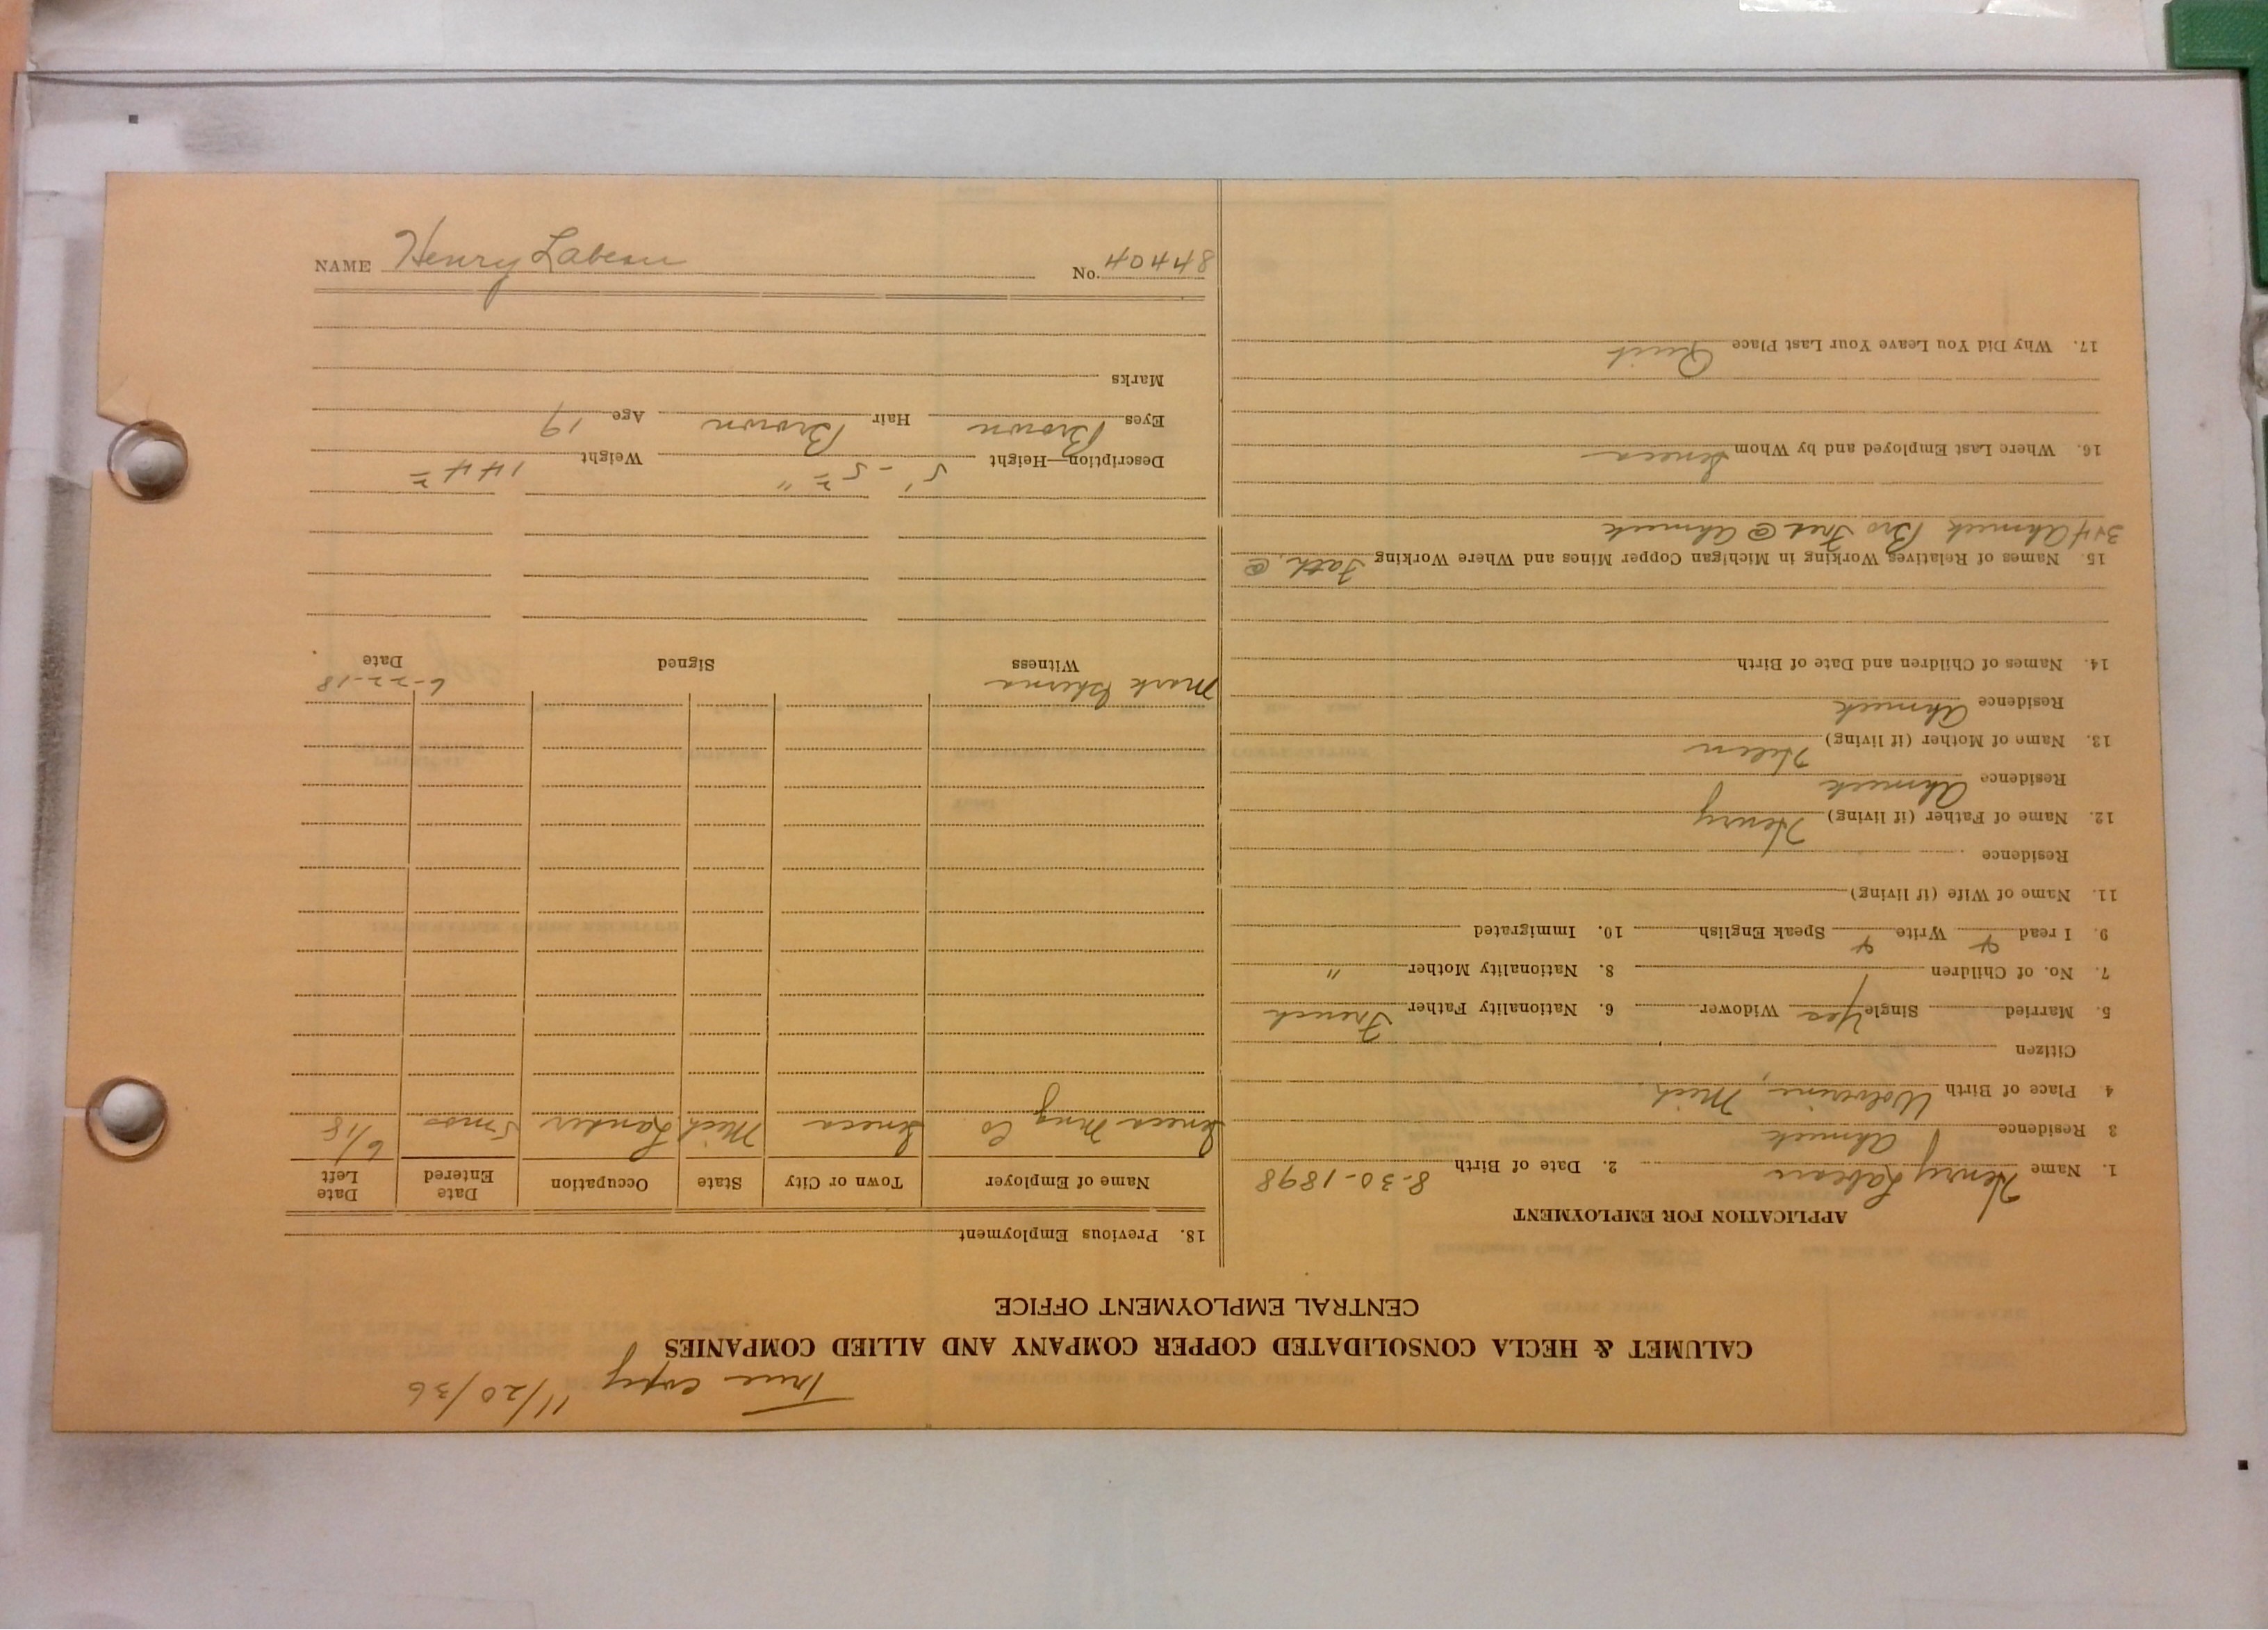 True copy 11/20/36
CALUMET & HECLA CONSOLIDATED COPPER COMPANY AND ALLIED COMPANIES
CENTRAL EMPLOYMENT OFFICE
APPLICATION FOR EMPLOYMENT
1. Name Henry Labeau 2. Date of Birth 8-30-1898
3 Residence Ahmeek
4 Place of Birth Wolverine, Mich.
Citizen
5. Married Single Yes Widower 6. Nationality Father French
7. No. of Children 8. Nationality Mother "
9. I read Write Speak English 10. Immigrated
11. Name of Wife (if living)
Residence
12. Name of Father (if living) Henry
Residence Ahmeek
13. Name of Mother (if living) Helen
Residence Ahmeek
14. Names of Children and Date of Birth
15. Names of Relatives Working in Michigan Copper Mines and Where Working Fath. @
3+4 Ahmeek Bro Fred @ Ahmeek
16. Where Last Employed and by Whom Seneca
17. Why Did You Leave Your Last Place Quit
18. Previous Employment
Name of Employer Town or City State Occupation Date Entered Date Left
Seneca Mng Co Seneca Mich. Lander 5 mos 6/18
Mark 6-22-18
Witness Signed Date
Description—Height 5' - 5 " Weight 144
Eyes Brown Hair Brown Age 19
Marks
NAME Henry Labeau No. 84404